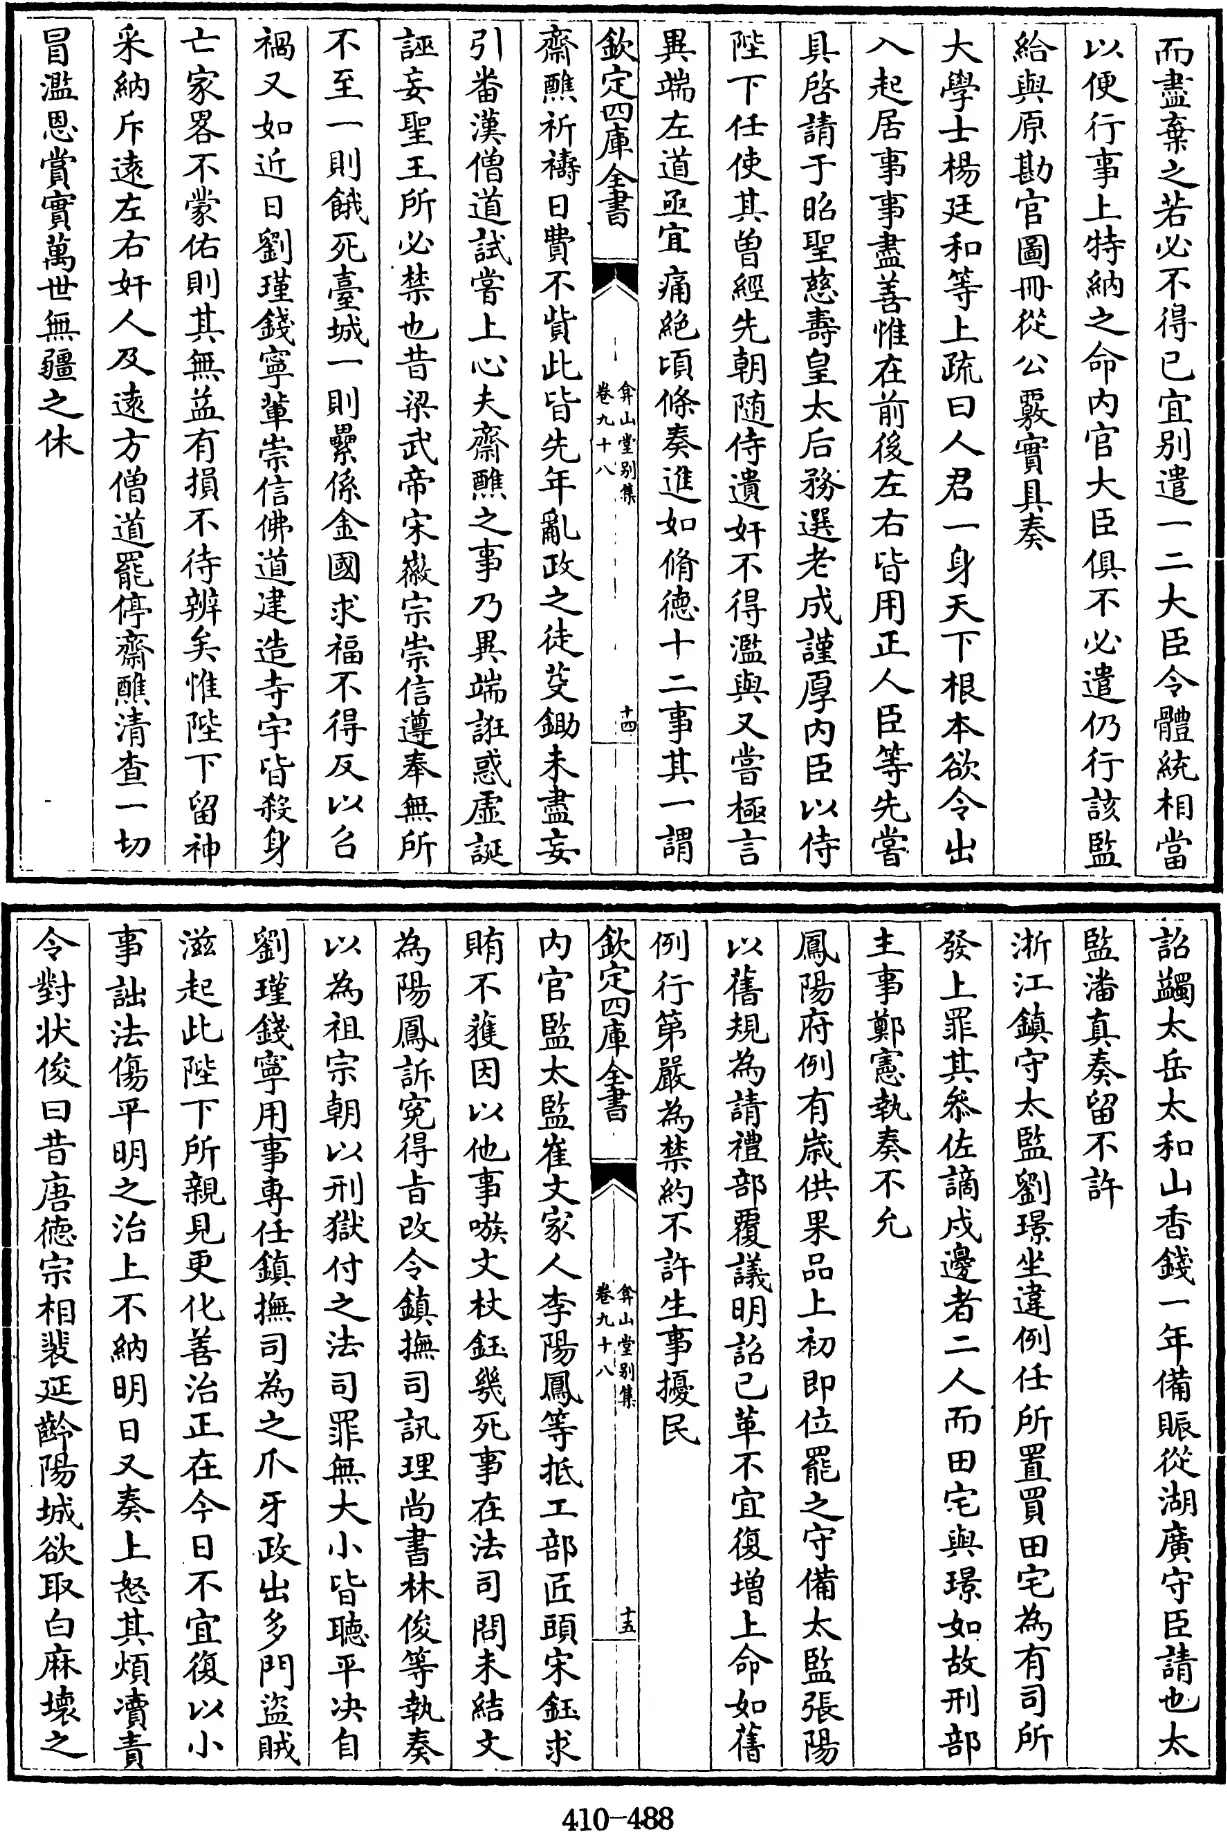 而盡棄之若必不得已宜别遣一二大臣令體統相當
以便行事上特納之命内官大臣俱不必遣仍行該監
給與原勘官圖冊從公覈實具奏
大學士楊廷和等上疏曰人君一身天下根本欲令出
入起居事事盡善惟在前後左右皆用正人臣等先嘗
具啓請于昭聖慈壽皇太后務選老成謹厚内臣以侍
陛下任使其曾經先朝随侍遺奸不得濫與又嘗極言
異端左道亟宜痛絶頃條奏進如脩德十二事其一謂
欽定四庫全書
弇山堂别集
卷九十八
十四
齋醮祈禱日費不貲此皆先年亂政之徒芟鋤未盡妄
引畨漢僧道試嘗上心夫齋醮之事乃異端誑惑虚誕
誣妄聖王所必禁也昔梁武帝宋徽宗崇信遵奉無所
不至一則餓死臺城一則纍係金國求福不得反以召
禍又如近日劉瑾錢寧輩崇信佛道建造寺宇皆殺身
亡家畧不蒙佑則其無益有損不待辨矣惟陛下留神
采納斥遠左右奸人及遠方僧道罷停齋醮清查一切
冒濫恩賞實萬世無疆之休
詔蠲太岳太和山香錢一年備賑從湖廣守臣請也太
監潘真奏留不許
浙江鎮守太監劉璟坐違例任所置買田宅為有司所
發上罪其叅佐謫戍邊者二人而田宅與璟如故刑部
主事鄭憲執奏不允
鳳陽府例有歳供果品上初即位罷之守備太監張陽
以舊規為請禮部覆議明詔已革不宜復增上命如舊
例行第嚴為禁約不許生事擾民
欽定四庫全書
弇山堂别集
卷九十八
十五
内官監太監崔文家人李陽鳳等抵工部匠頭宋鈺求
賄不獲因以他事嗾文杖鈺幾死事在法司問未結文
為陽鳳訴寃得旨改令鎮撫司訊理尚書林俊等執奏
以為祖宗朝以刑獄付之法司罪無大小皆聽平决自
劉瑾錢寧用事専任鎮撫司為之爪牙政出多門盗賊
滋起此陛下所親見更化善治正在今日不宜復以小
事詘法傷平明之治上不納明日又奏上怒其煩瀆責
令對狀俊曰昔唐德宗相裴延齡陽城欲取白麻壊之
410-488